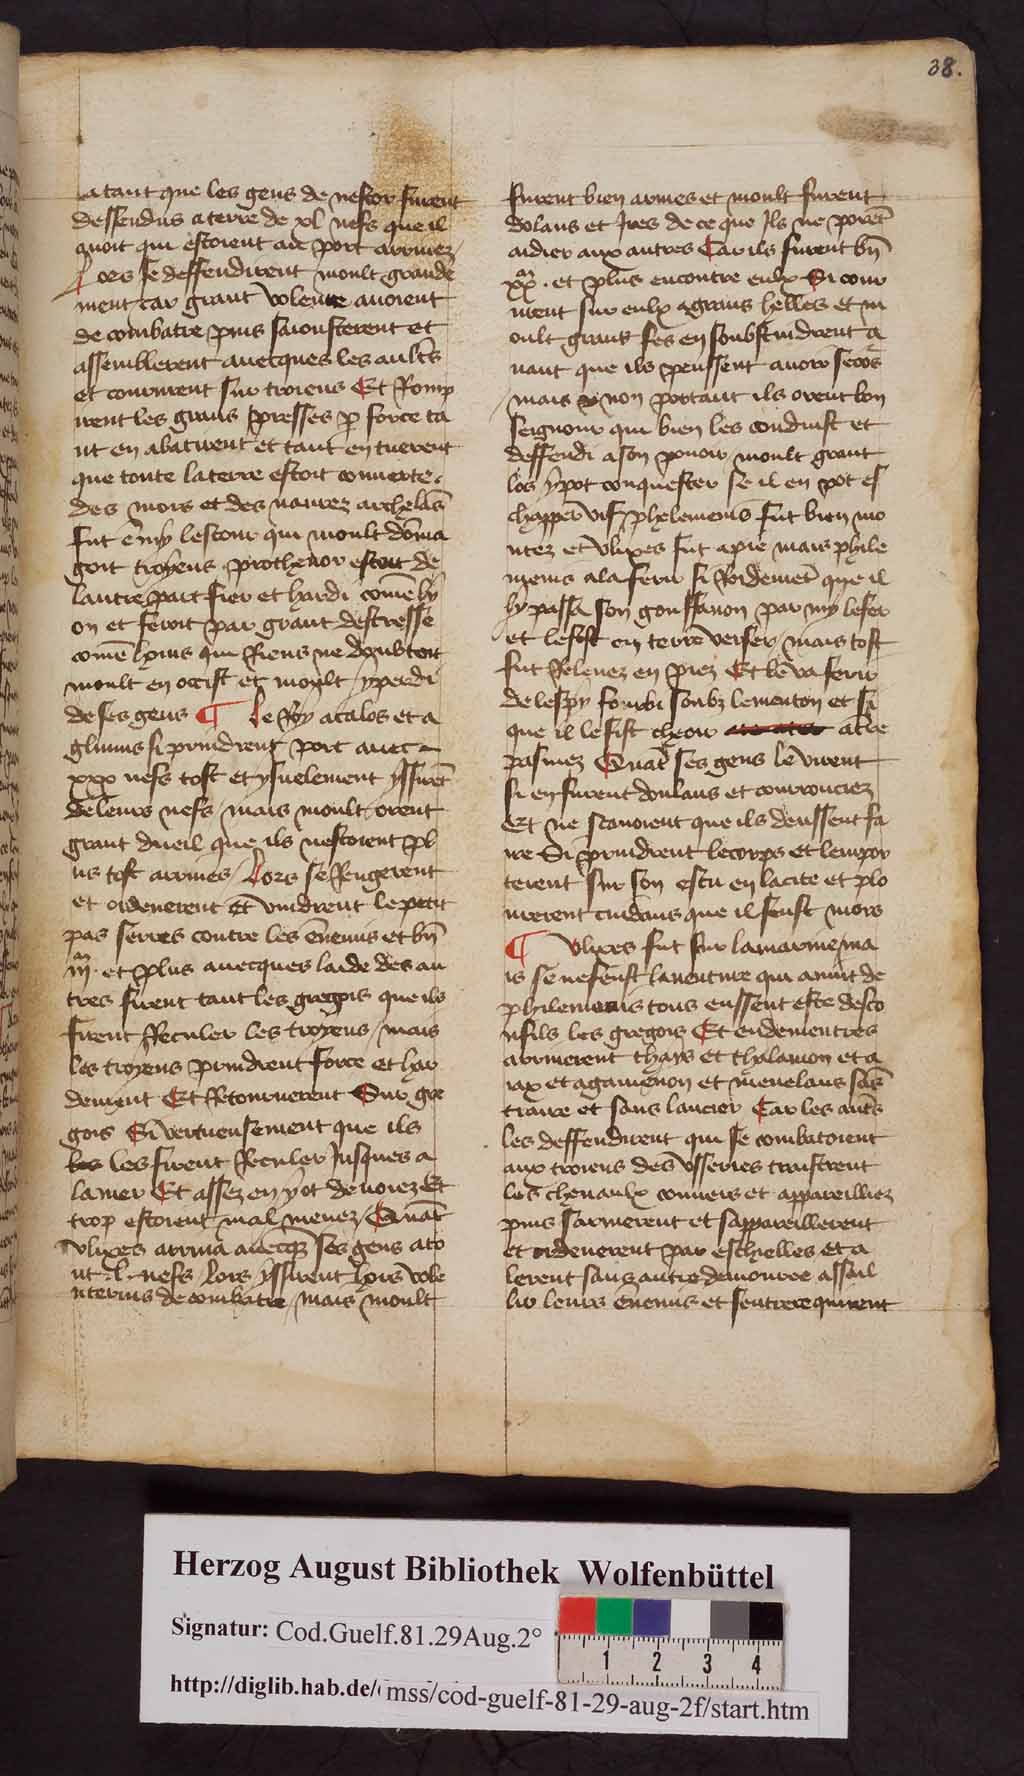 38.
atant que les gens de nestor furent
dessendus a terre de xl nefs que il
auoit qui estoient au port arriuez
Lors se deffendirent moult grande
ment car grant volente auoient
de combatre puis saiousterent et
assemblerent auecques les aultrs
et coururent sur troiens Et Romp
irent les grans presses p force ta
nt en abatirent et tant en tuerent
que toute la terre estoit couuerte
des mors et des naurez archelas
fut emy lestour qui moult doma
goit troyens prothenor estoit de
lautre part fier et hardi come ly
on et feroit par grant destresse
come lyons qui Riens ne doubtoit
moult en occist et moult y perdi
de ses gens ¶ Le Roy atalos et a
glimus si prindrent port auec
xxx nefs tost et ysnelement yssiret
de leurs nefs mais moult orent
grant dueil que ils nestoient pl
us tost arriues Lors se Rengerent
et ordenerent Et vindrent le petit
pas serres contre les enemis et bn
iijm. et plus auecques laide des au
tres firent tant les gregois que ils
firent Reculer les troyens mais
les troyens prindrent force et har
dement Et Retournerent Sur gre
gois Si vertueusement que ils
les les firent Reculer Jusques a
la mer Et assez en y ot de noiez Et
trop estoient mal menez Quat
Vlixes arriua auecqz ses gens ato
ut .l. nefs lors yssirent hors vole
nterius de combatre mais moult
furent bien armes et moult furent
dolans et Ires de ce que Ils ne poret
aidier aux autres Car ils furent bn
xxm. et plus encontre eulx Si cour
urent sur eulx a grans helles et m
oult grant fes en soubstindrent a
uant que ils peussent auoir secos
mais non portant ils orent bon
seignour qui bien les conduist et
deffendi a son pouoir moult grant
los y pot conquester se il en pot es
chapper vif phelemenis fut bien mo
ntez et vlixes fut a pie mais phile
menis ala ferir si Roidemet que il
ly passa son gonffanon par my lescr
et le fist en terre verser mais tost
fut Releuez en piez Et le va ferir
de lespy fourbi soubz le menton et si
que il le fist cheoir a tre
pasmez Quat ses gens le virent
si en furent doulans et courrouciez
Et ne scauoient que ils deussent fa
ire Si prindrent le corps et lempor
terent sur son escu en la cite et plo
urerent cuidans que il feust mors
¶ Vlixes fut sur la marine ma
is se ne feust lauenture qui auint de
philemenis tous eussent este desco
nfils les gregois Et endementres
arriuerent thays et thalamon et a
iax et agamenon et menelaus sas
traire et sans lancier Car les autrs
les deffendirent qui se combatoient
aux troiens des vsseries traistrent
les cheuaulx couuers et appareilliez
puis sarmerent et sappareillerent
et ordenerent par eschielles et a
lerent sans autre demouree assail
lir leurs enemis et sentrerequirent
Herzog August Bibliothek Wolfenbüttel
Signatur: Cod.Guelf.81.29Aug.2°
1 2 3 4
http://diglib.hab.de/mss/cod-guelf-81-29-aug-2f/start.htm